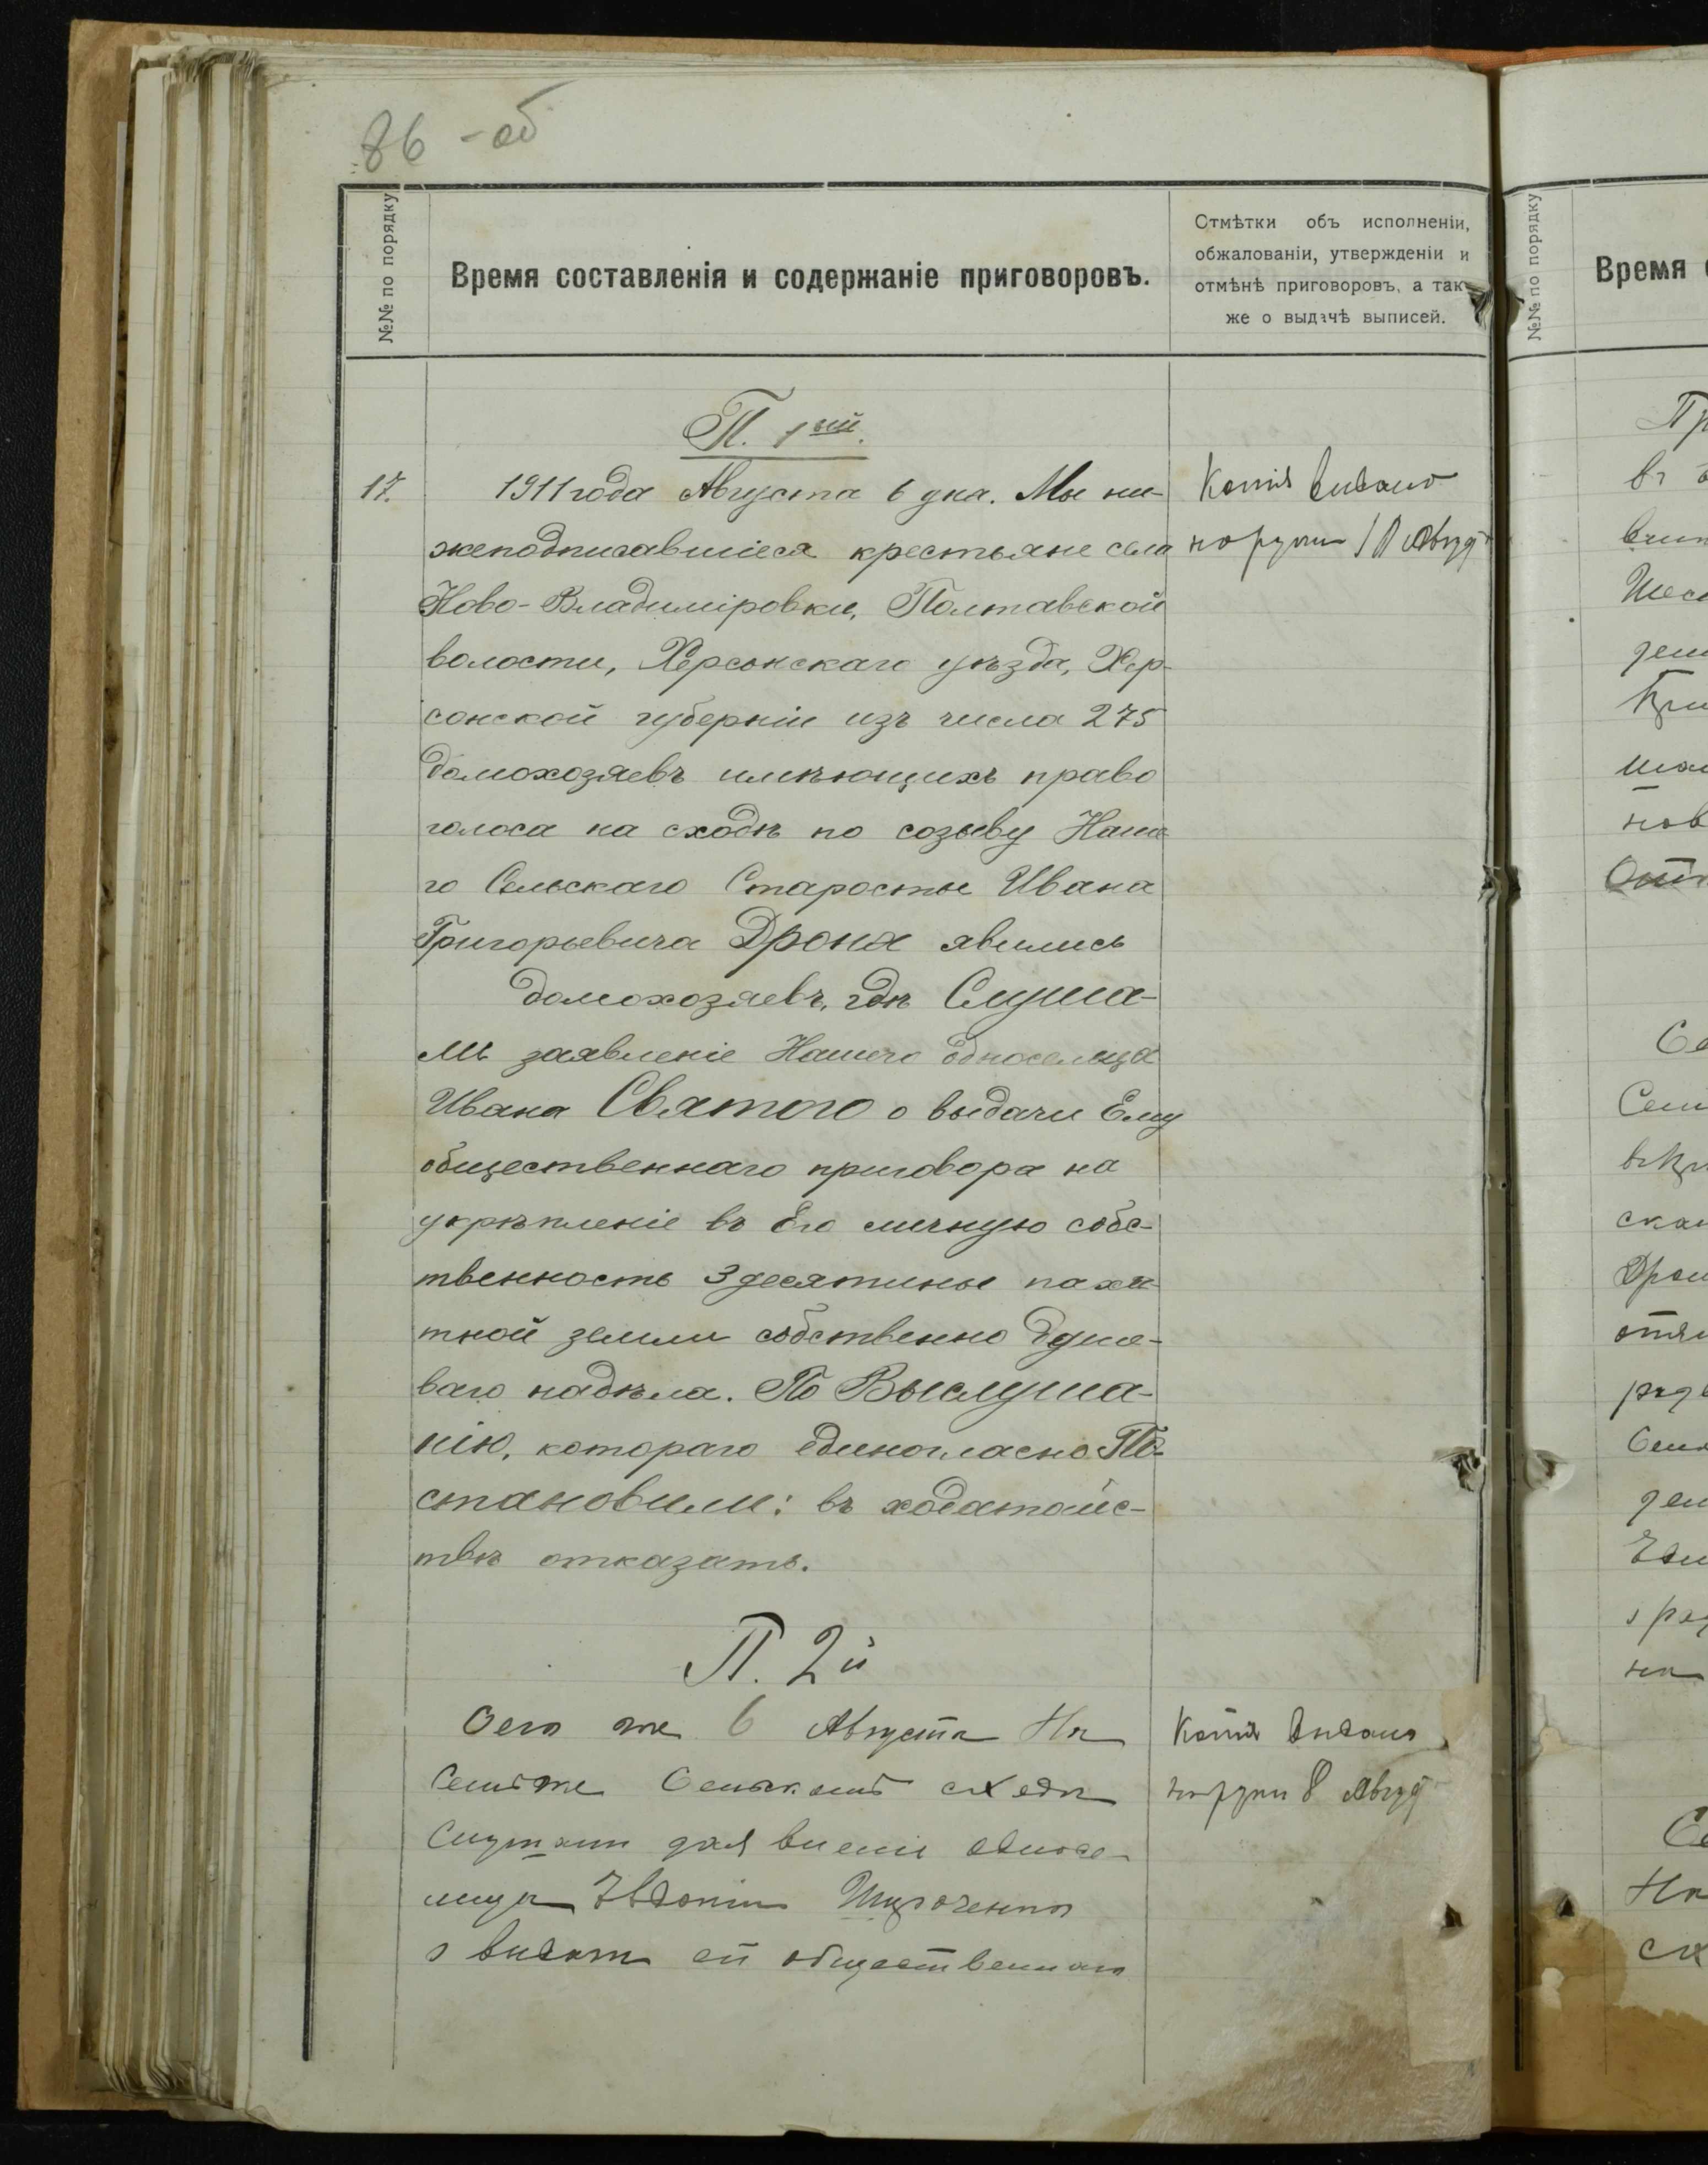 86 - об
№№ по порядку
Время составленія и содержаніе приговоровъ.
Отмѣтки объ исполненіи,
обжалованіи, утвержденіи и
отмѣнѣ приговоровъ, а так-
же о выдачѣ выписей.
П. 1ый.
17.
1911 года Августа 6 дня. Мы ни-
жеподписавшіеся крестьяне села
Ново-Владиміровки, Полтавской
волости, Херсонскаго уѣзда, Хер-
сонской губерніи изъ числа 275
домохозяевъ имѣющихъ право
голоса на сходѣ по созыву Наше
го Сельскаго Старосты Ивана
Григорьевича Дрона явились
домохозяевъ, гдѣ Слуша-
ли заявленіе Нашего Односельца
Ивана Святого о выдачи Ему
общественнаго приговора на
укрѣпленіе въ Его личную собс-
твенность 3 десятины паха-
тной земли собственно Душе-
ваго надѣла. По Выслуша-
нію, котораго единогласно По-
становили: въ ходатайс-
твѣ отказать.
Копія видано
на руки 10 Авгус
П. 2й
Сего же 6 Августа На
Семъ же Сельскомъ сходѣ
Слушали заявленіе односе-
льца Явдокіи
о видати ей общественнаго
Копія видано
на руки 8 Авгус
№№ по порядку
Время